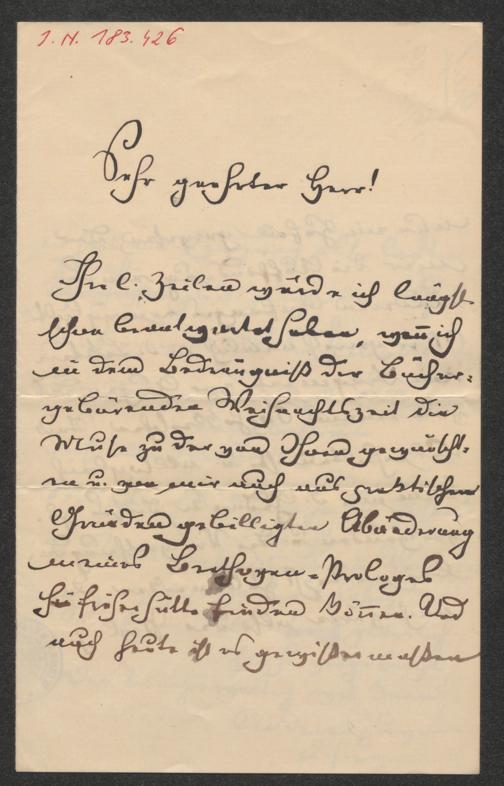 J. N. 183.426
Sehr geehrter Herr!
Ihre l. Zeilen würde ich längst
schon beantwortet haben, wenn ich
in dem Bedrängniß der Bücher-
gebärenden Weihnachtszeit die
Muse zu der von Ihnen gewünscht-
en u. von mir auch aus praktischen
Gründen gebilligten Abänderung
meines Beethoven-Prologes
früher hätte finden können. Und
auch heute ist es gewissermaßen